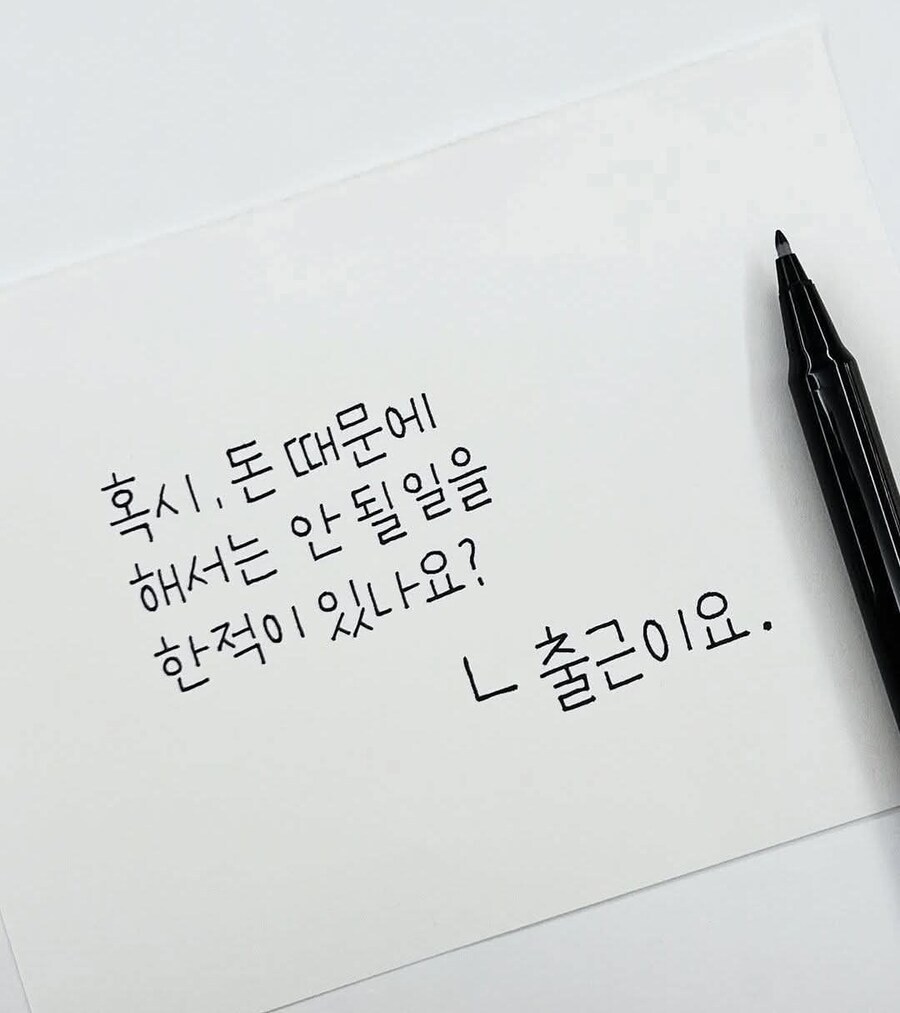 혹시, 돈 때문에
해서는 안 될 일을
한적이 있나요?
ㄴ 출근이요.